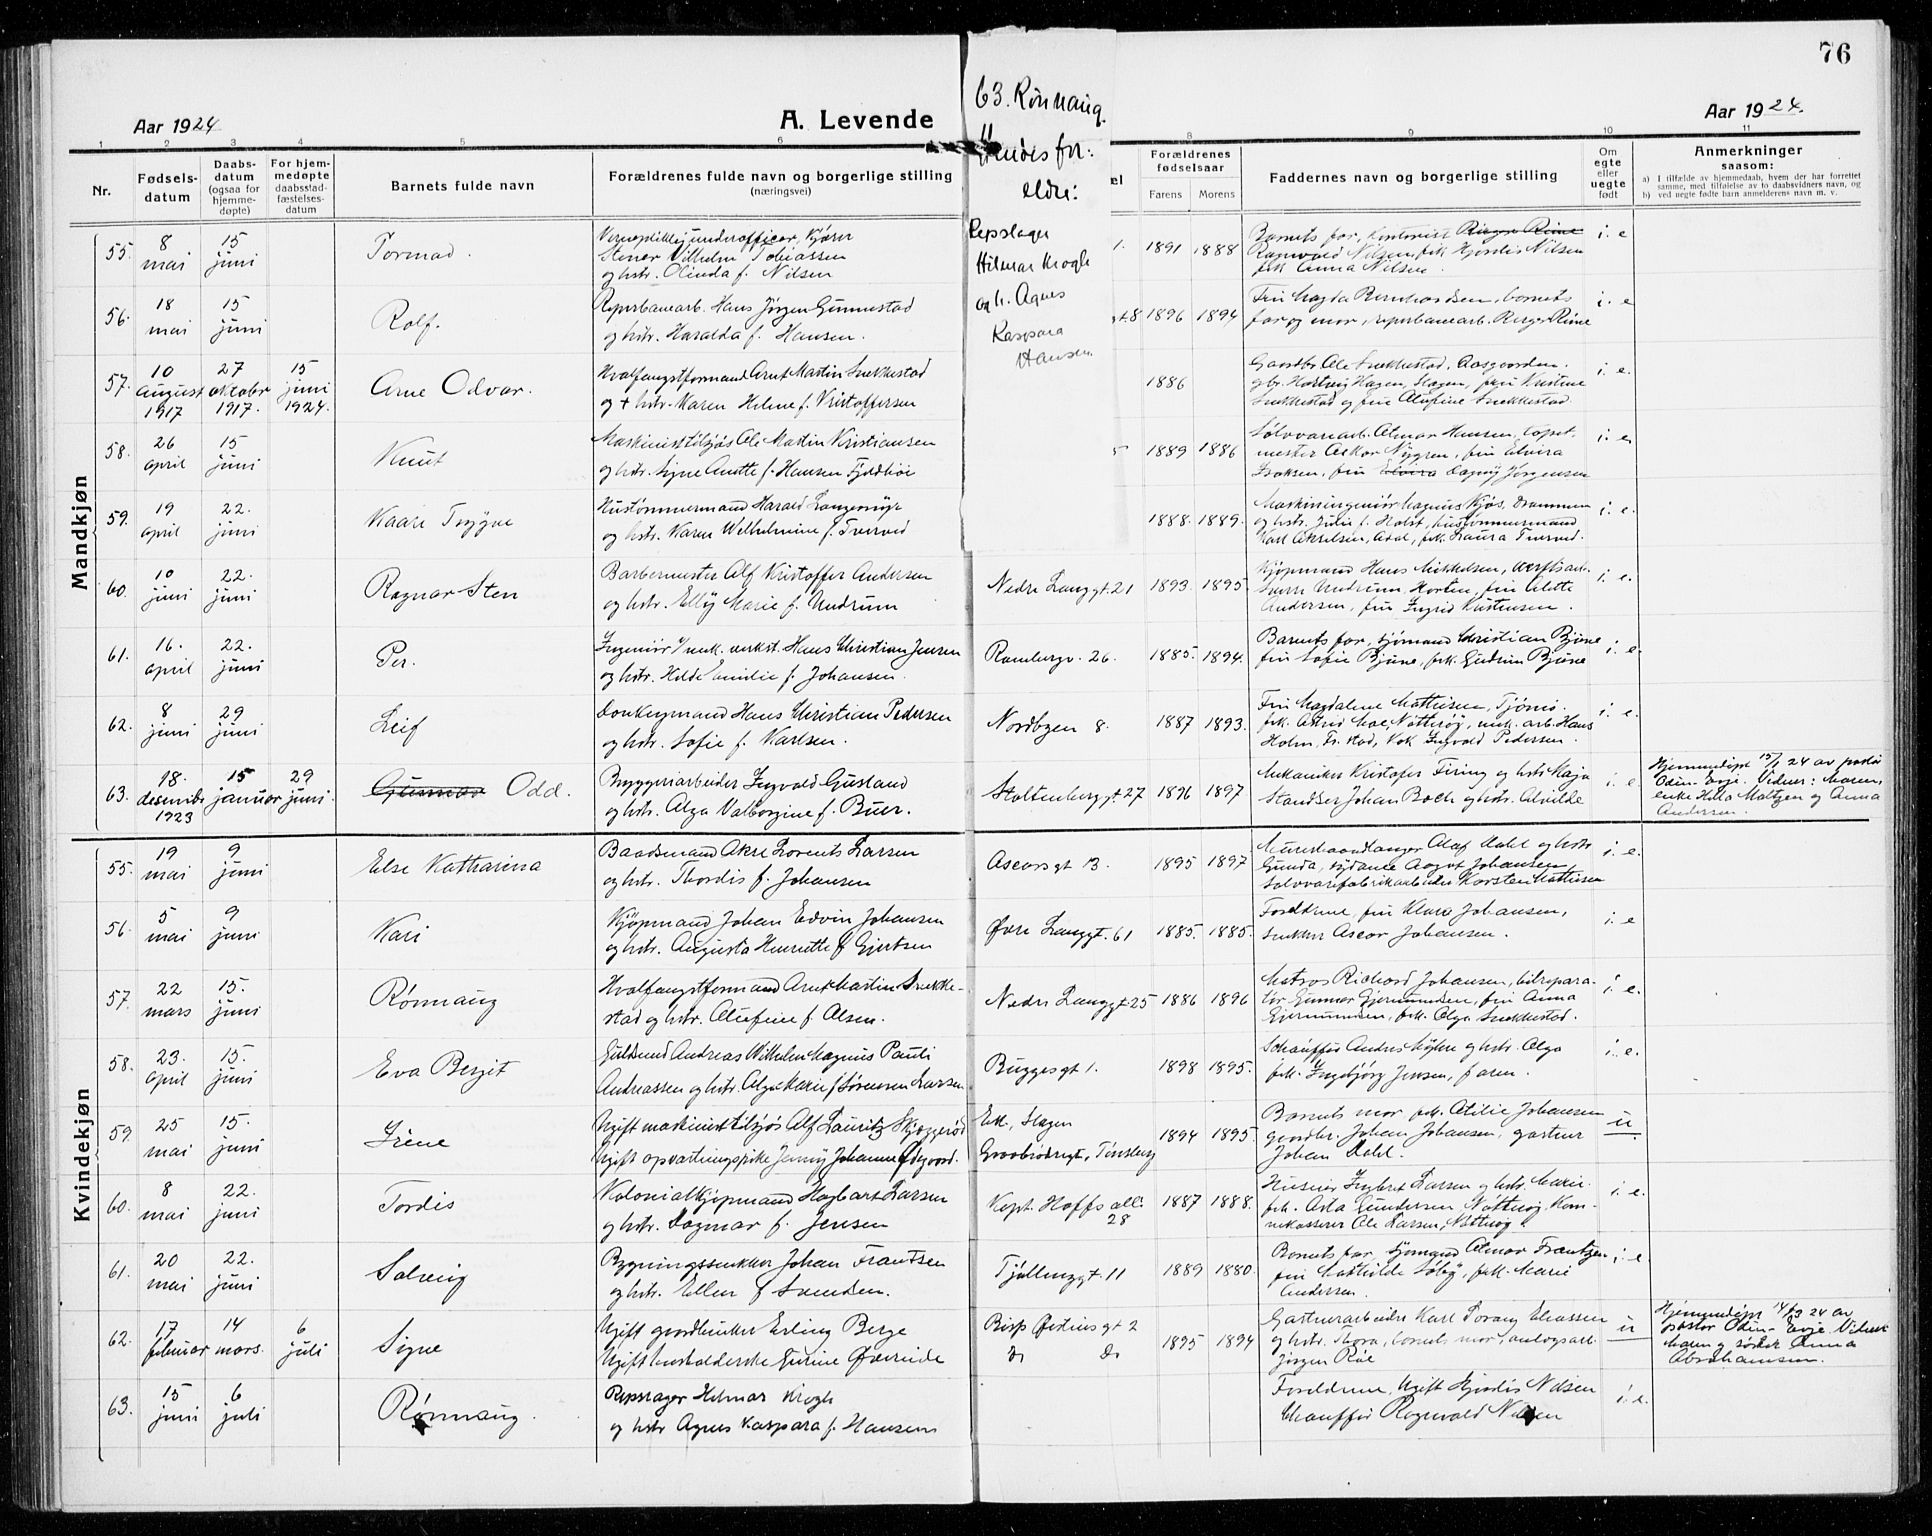 76
Aar 1924
A. Levende
Aar 1924.
63. Rönnaug.
Hendes for:
eldre:
Repslager
Hilmar Krogh
og h. Agnes
Kaspara
Hansen
1 2 3 4 5 6 8 9 10 11
Nr.
Fødsels-
datum
Daabs-
datum
(ogsaa for
hjemme-
døpte)
For hjem-
medøpte
daabsstad-
fæstelses-
datum
Barnets fulde navn
Forældrenes fulde navn og borgerlige stilling
(næringsvei)
Forældrenes
fødselsaar
Farens Morens
Faddernes navn og borgerlige stilling
Om
egte
eller
uegte
født
Anmerkninger
saasom:
a) I tilfælde av hjemmedaab, hvem der har forrettet
samme, med tilføielse av to daabsvidners navn, og
b) ved uegte fødte barn anmelderens navn m. v.
Mandkjøn
55. 8 mai 15 juni Tormod.
Vernepliktig underofficer, Kjører
Stener Vilhelm Tobiassen
og hstr. Olinda f. Nilsen
1891 1888
Barnets far, kontorist Birger Riine
Ragnvald Nilsen, frk Hjørdis Nilsen
frk Anna Nilsen.
i. e
56. 18 mai 15 juni Rolf.
Reperbanearb. Hans Jørgen Gunnestad
og hstr. Haralda f. Hansen.
1896 1894
Fru Magda Bernhardsen, barnets
far og mor, reperbanearb. Birger Riine
i. e
57. 10 august 1917 27 oktober 1917. 15 juni 1924. Arne Odvar.
Hvalfangstformand Arnt Martin Snekkestad
og + hstr. Karen Helene f. Kristoffersen
1886
Gaardbr. Ole Snekkestad, Aasgaarden.
gbr. Hartvig Hagen, Slagen, fru Kristine
Snekkestad og fru Alufine Snekkestad.
i. e.
58. 26 april 15 juni Knut
Maskinist tilsjøs Ole Martin Kristiansen
og hstr. Signe Anette f. Hansen Fjeldbøe
1889 1886
Sølvvarearb. Otmar Hansen, tapet-
mester Askar Nygren, fru Elvira
Isaksen, fru Elvira Dagny Jørgensen
i. e.
59. 19 april 22. juni Kaare Trygve
Hustømmermand Harald Langerød
og hstr. Karen Wilhelmine f. Tverved
1888. 1889.
Maskiningeniør Magnus Kjøs, Drammen
og hstr. Julie f. Holst, hustømmermand
Karl Akselsen, Adal, frk. Laura Tverved.
i. e.
60. 10 juni 22. juni Ragnar Sten
Barbermester Alf Kristoffer Andersen
og hstr. Elly Marie f. Undrum
Nedre Langgt. 21 1893. 1895.
Kjøpmand Hans Mikkelsen, verftsarb.
Sverre Undrum, Horten, fru Alette
Andersen, fru Ingrid Kristensen.
i. e.
61. 16. april 22. juni Per.
Ingeniør v/mek. verkst. Hans Christian Jensen
og hstr. Hilda Emilie f. Johansen.
Rambergv. 26. 1885. 1894.
Barnets far, sjømand Christian Bjune
fru Sofie Bjune, frk. Gudrun Bjune
i. e.
62. 8 juni 29 juni Leif
Donkeymand Hans Christian Pedersen
og hstr. Sofie f. Karlsen.
Nordbyen 8. 1887 1893.
Fru Magdalene Mathisen, Tjømø.
frk. Astrid Moe, Nøtterøy, mek. arb. Hans
Holm, Fr.stad, Kok Ingvald Pedersen.
i. e.
63. 18. desember 1923 15 januar 29 juni. Gunnar Odd.
Bryggeriarbeider Ingvald Gusland
og hstr. Alga Valborgine f. Buer.
Stoltenberggt. 27 1896 1897
Mekaniker Kristofer Firing og hstr. Maja
Standser Johan Bach og hstr. Alvilde
i. e
Hjemmedøpt 15/1 24 av pastor
Odin-Evje. Vidner: Moren,
enke Hilda Maltzen og Anna
Andersen.
Kvindekjøn
55. 19 mai 9 juni Else Katharina
Baadsmand Aksel Lorents Larsen
og hstr. Thordis f. Johansen
Ascarsgt 13. 1895 1897
Murerhaandlanger Olaf Dahl og hstr
Gunda, sydame Aagot Johansen,
sølvvarefabrikarbeider Karsten Mathisen
i. e.
56. 5 mai 9 juni Kari
Kjøpmand Johan Edvin Johansen
og hstr. Augusta Henriette f Gjertsen
Øvre Langgt. 61 1885. 1885.
Foreldrene, fru Klara Johansen,
snekker Ascar Johansen.
i. e
57. 22 mars 15. juni Rønnaug
Hvalfangstformand Arnt Martin Snekke-
stad og hstr. Alufine f. Olsen.
Nedre Langgt 25 1886 1896
Matros Richard Johansen, bilrepara-
tør Gunnar Gjermundsen, fru Anna
Gjermundsen, frk. Olga Snekkestad.
i. e.
58. 23. april 15. juni Eva Bergit
Guldsmed Andreas Wilhelm Magnus Pauli
Andreassen og hstr. Olga Marie f Sørensen Larsen
Buggesgt 1. 1898 1895.
Schauffør Andres Myhre og hstr. Olga
frk. Ingebjørg Jensen, faren.
i. e.
59. 25 mai 15. juni Iréne
Ugift maskinist tilsjøs Alf Lauritz Skjeggerød
Ugift opvartningspike Jenny Johanne Ødegaard.
Eik, Slagen
Graabrødregt, Tønsberg 1894 1895.
Barnets mor frk. Otilie Johansen
gaardbr. Johan Johansen, gartner
Johan Dahl.
u
60. 8 mai 22. juni Tordis
Kolonialkjøpmand Hagbart Larsen
og hstr. Dagmar f. Jensen
Kapt. Hoffs allé
28 1887 1888.
Huseier Ingbret Larsen og hstr. Marie.
frk. Asta Gundersen Nøtterøy. Kom-
nekasserer Ole Larsen, Nøtterøy
i. e.
61. 20 mai 22. juni Solveig
Bygningssnekker Johan Frantsen
og hstr. Ellen f Svendsen.
Tjøllinggt. 11 1889 1880.
Barnets far, sjømand Otmar Frantzen
fru Mathilde Søby, frk. Marie
Andersen.
i. e.
62. 17 februar 14 mars. 6 juli Signe
Ugift gaardbruker Erling Berge
Ugift husholderske Gurine Øvereide
Bisp Øisteins gt 2
do do 1895 1894
Gartnerarbeider Karl Torang Eliassen
og hstr. Thora, barnets mor, anlægsarb.
Jørgen Røe
u
Hjemmedøpt 14/3 24 av
pastor Odin-Evje. Vidner
Moren og søster Anna
Abrahamsen.
63. 15 juni 6 juli Rønnaug.
Repslager Helmar Krogh
og hstr Agnes Kaspara f. Hansen
Foreldrene, Ugift Hjørdis Nilsen
Chauffør Ragnvald Nilsen
i. e.